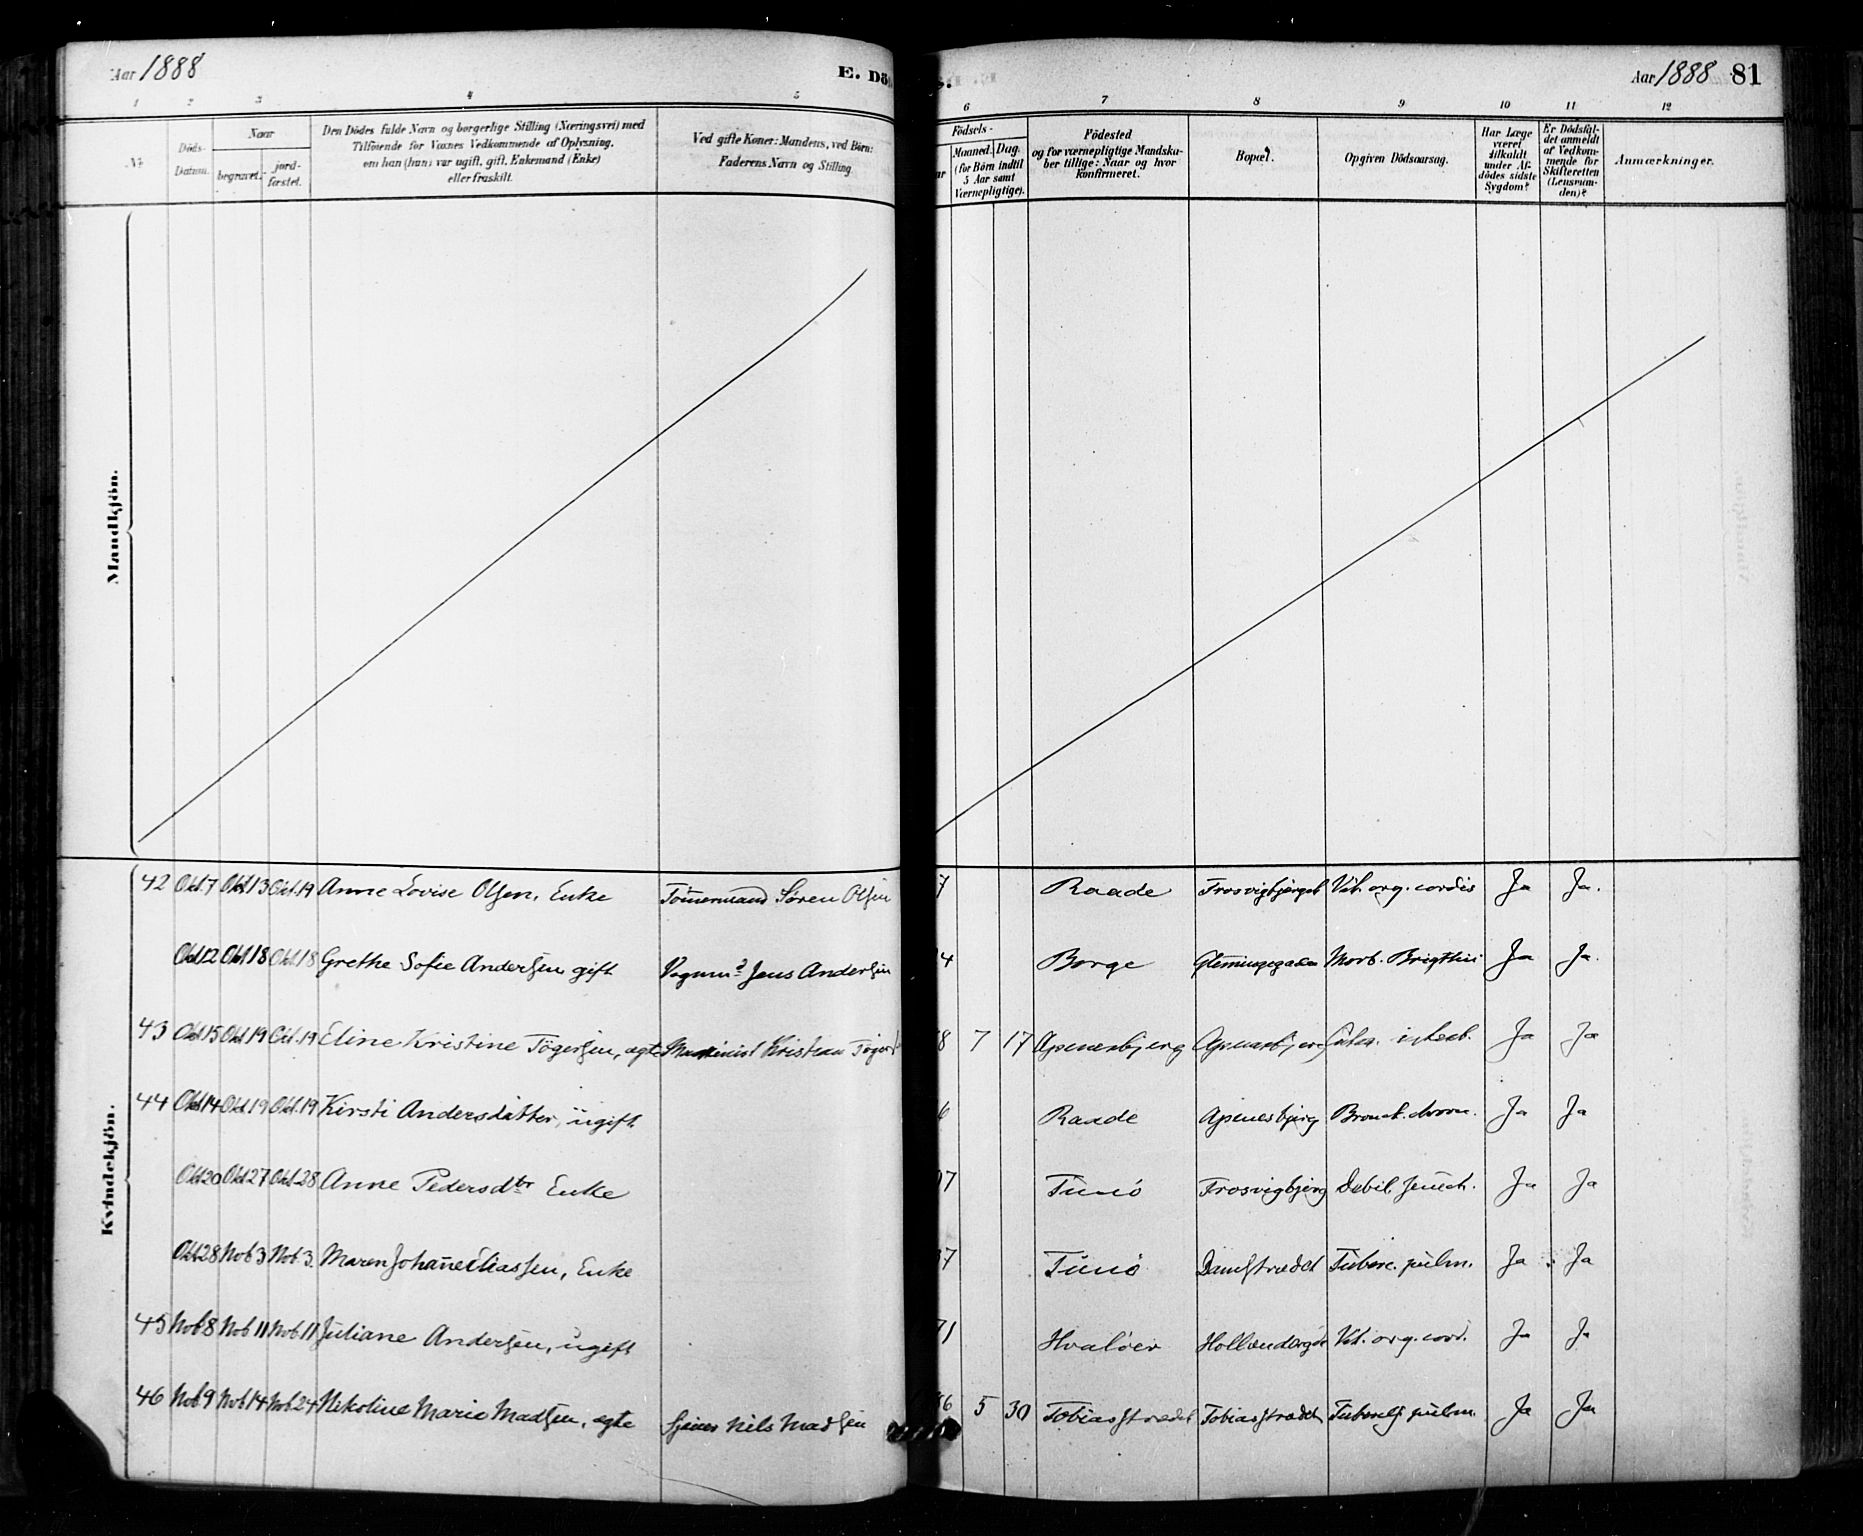 Aar 1888
E. Dö
Aar 1888 81
1 2 3 4 5
6 7 8 9 10 11 12
No
Döds-
Datum.
Naar
begravet.
jord-
fæstet.
Den Dödes fulde Navn og borgerlige Stilling (Næringsvei) med
Tilföiende for Voxnes Vedkommende af Oplysning,
om han (hun) var ugift, gift, Enkemand (Enke)
eller fraskilt.
Ved gifte Koner: Mandens, ved Börn:
Faderens Navn og Stilling.
Födsels-
Maaned. Dag.
(for Börn indtil
5 Aar samt
Værnepligtige).
Födested
og for værnepligtige Mandska-
ber tillige: Naar og hvor
konfirmeret.
Bopæl.
Opgiven Dödsaarsag.
Har Læge
været
tilkaldt
under Af-
dödes sidste
Sygdom?
Er Dödsfal-
det anmeldt
af Vedkom-
mende for
Skifteretten
(Lensman-
den)?
Anmærkninger.
Mandkjön.
Kvindekjön.
42 Okt.7 Okt.13 Okt.19 Anne Lovise Olsen, Enke Tömmermand Søren Olsen 7 Raade Frosvigbjerget Vit. org. cordis Ja Ja.
Okt.12 Okt.18 Okt.18 Grethe Sofie Andersen gift Vognmd Jens Andersen 4 Borge Glemmegaden Morb. Brigthii Ja Ja.
43 Okt.15 Okt.19 Okt.19 Eline Kristine Tögersen, ægte Maskinist Kristian 8 7 17 Apenesbjerg Apenesbjerg Ja Ja
44 Okt.14 Okt.19 Okt.19 Kirsti Andersdatter, ugift 6 Raade Apenesbjerg Bronch. Ja Ja
Okt.20 Okt.27 Okt.28 Anne Pedersdtr Enke 07 Tunö Frosvigbjerg Debil. senect. Ja Ja
Okt.28 Nob.3 Nob.3. Maren Johanne Eliassen, Enke 7 Tunö Damstrædet Tuberc. pulm. Ja Ja
45 Nob.8 Nob.11 Nob.11 Juliane Andersen, ugift 71 Hvalöer Vit. org. cord. Ja Ja
46 Nob.9 Nob.14 Nob.24 Nikoline Marie Madsen, ægte Sjömd Nils Madsen 86 5 30 Tobiasstrædet Tobiasstrædet pulm. Ja Ja